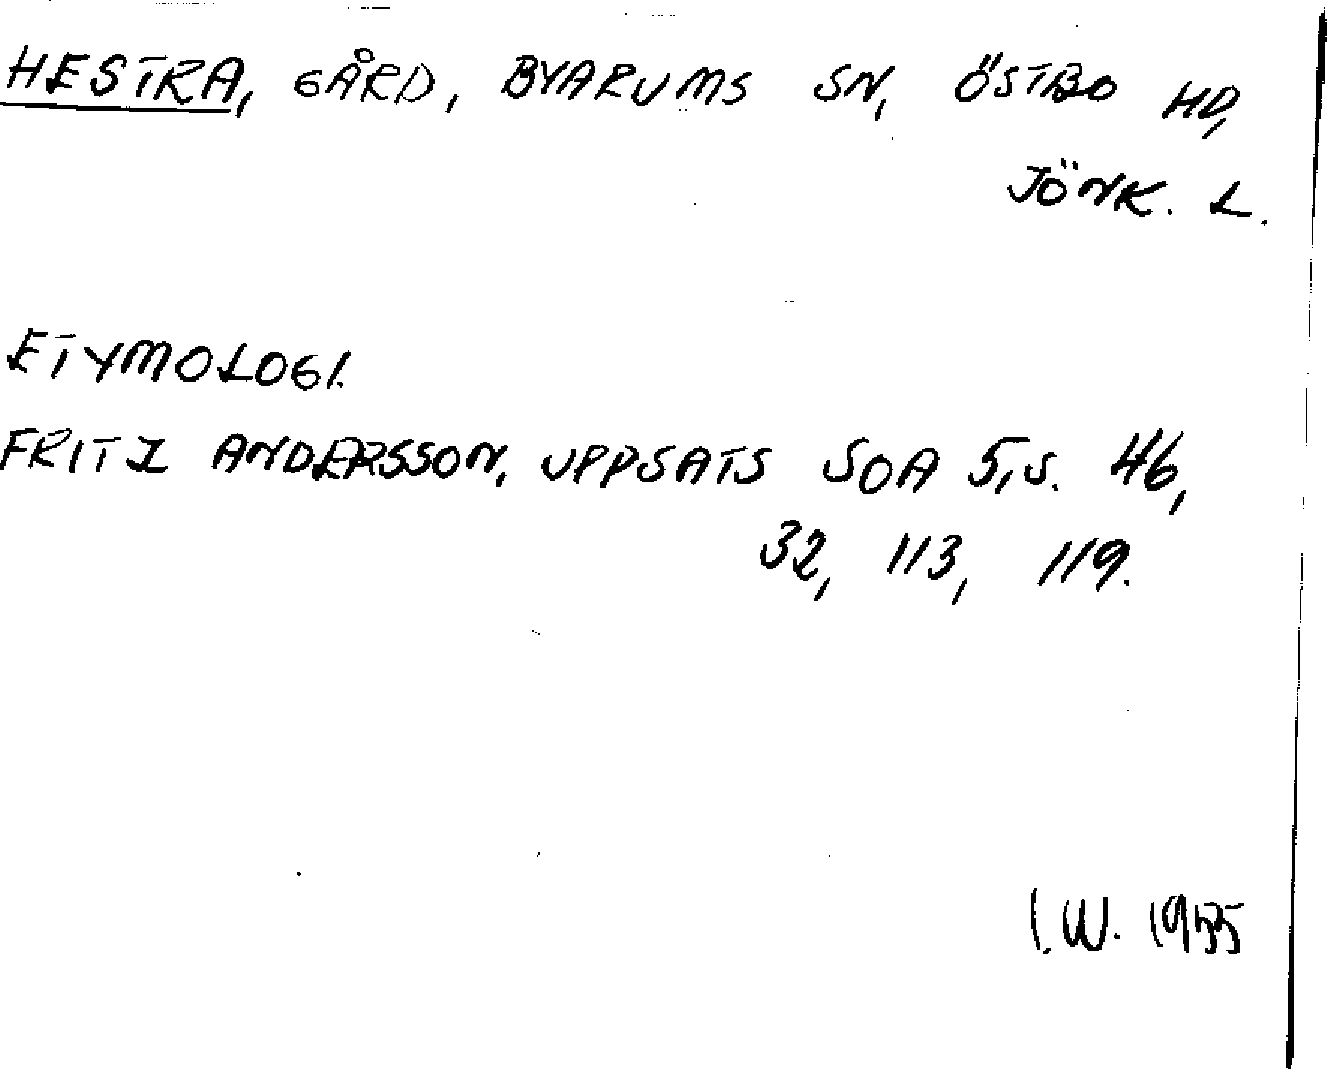 HESTRA, GÅRD, BYARUMS SN, ÖSTBO HD,
JÖNK. L.
ETYMOLOGI.
FRITZ ANDERSSON, UPPSATS SOA 5, S. 46,
32, 113, 119.
I.W. 1955